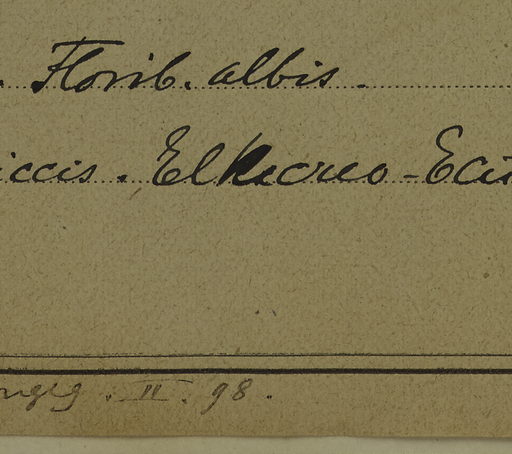 . Florib. albis.
iccis. El Recreo - Ecu
II. 98.